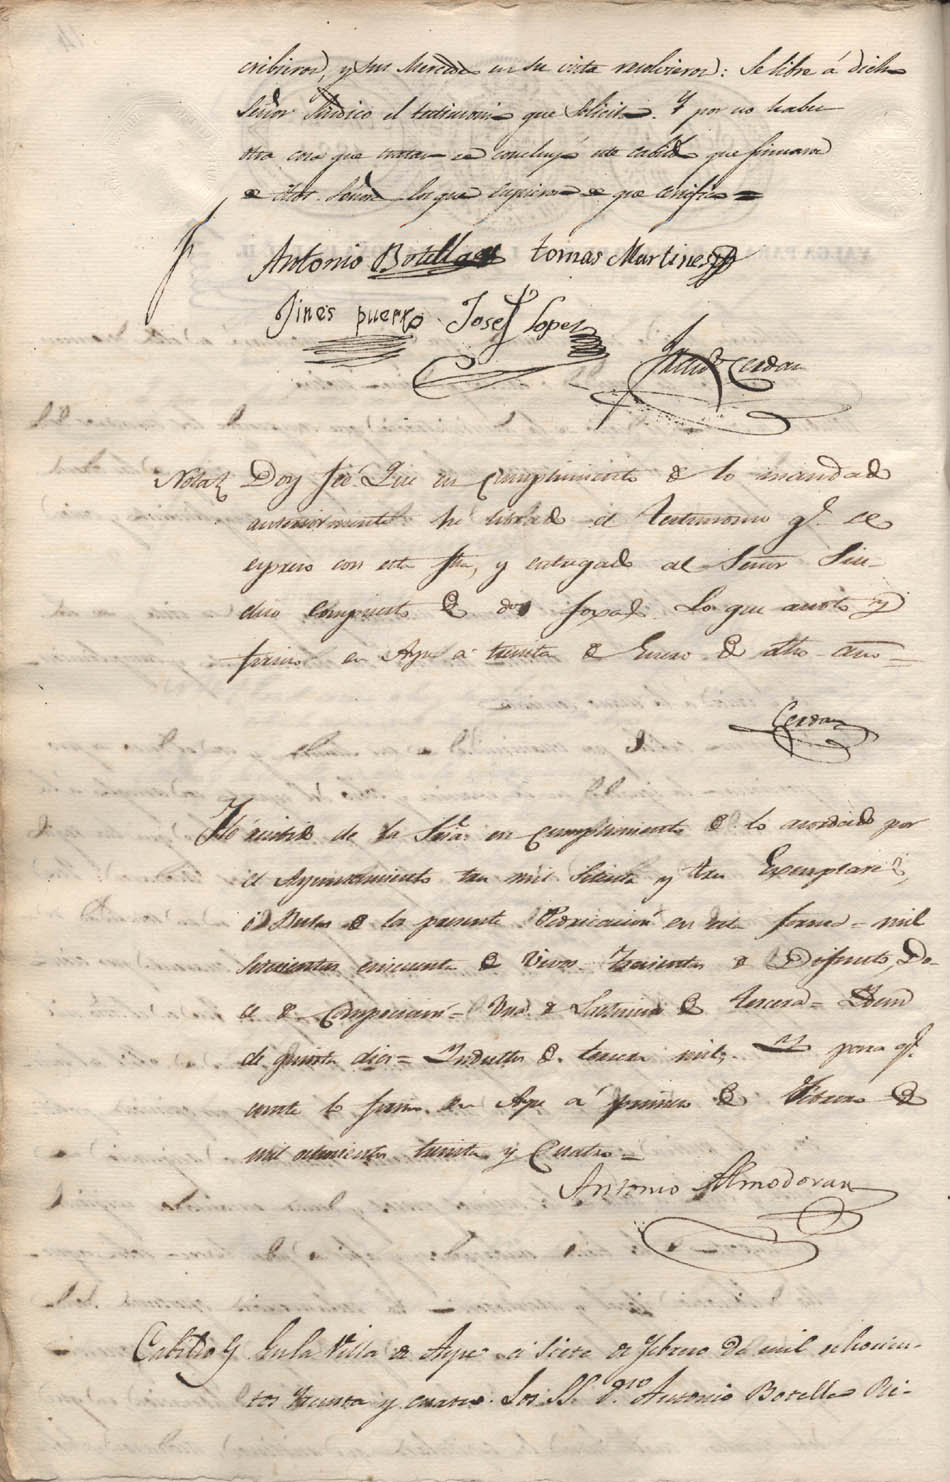 cribieron, y sus Mercedes en su vista resolvieron: Se libre á dicho
Señor Sindico el testimonio que solicita. Y por no haber
otra cosa que tratar se concluyó este cabildo que firmaron
de dhos. Señores los que supieron de que certifico =
Antonio Botella tomas Martines
Jines puerto Josef Lopez
Cerdan
Nota Doy feé Que en cumplimiento de lo mandado
anteriormente hé librado el testimonio qe. se
expreso con esta fha, y entregado al Señor Sin-
dico compuesto de dos foxas. Lo que anoto y
firmo en Aspe á treinta de Enero de dho año =
Cerdan
Hé recibido de la Sria en cumplimiento de lo acordado por
el Ayuntamiento tres mil setenta y tres Exemplares,
ó Bulas de la presente Predicacion en esta forma = mil
setecientos cincuenta de Vivos = Trecientos de Difuntos, Do-
ce de Composicion = Una de Lacticinios de tercera = Idem
de quarta dies = Indultos de tercera mil, Y para qe.
conste lo firmo en Aspe á primero de Febrero de
mil ochocientos treinta y Cuatro =
Antonio Almodovar
Cabildo En la Villa de Aspe á Siete de Febrero de mil ochocien-
tos treinta y cuatro. Los SS. Dn. Antonio Botella Re-